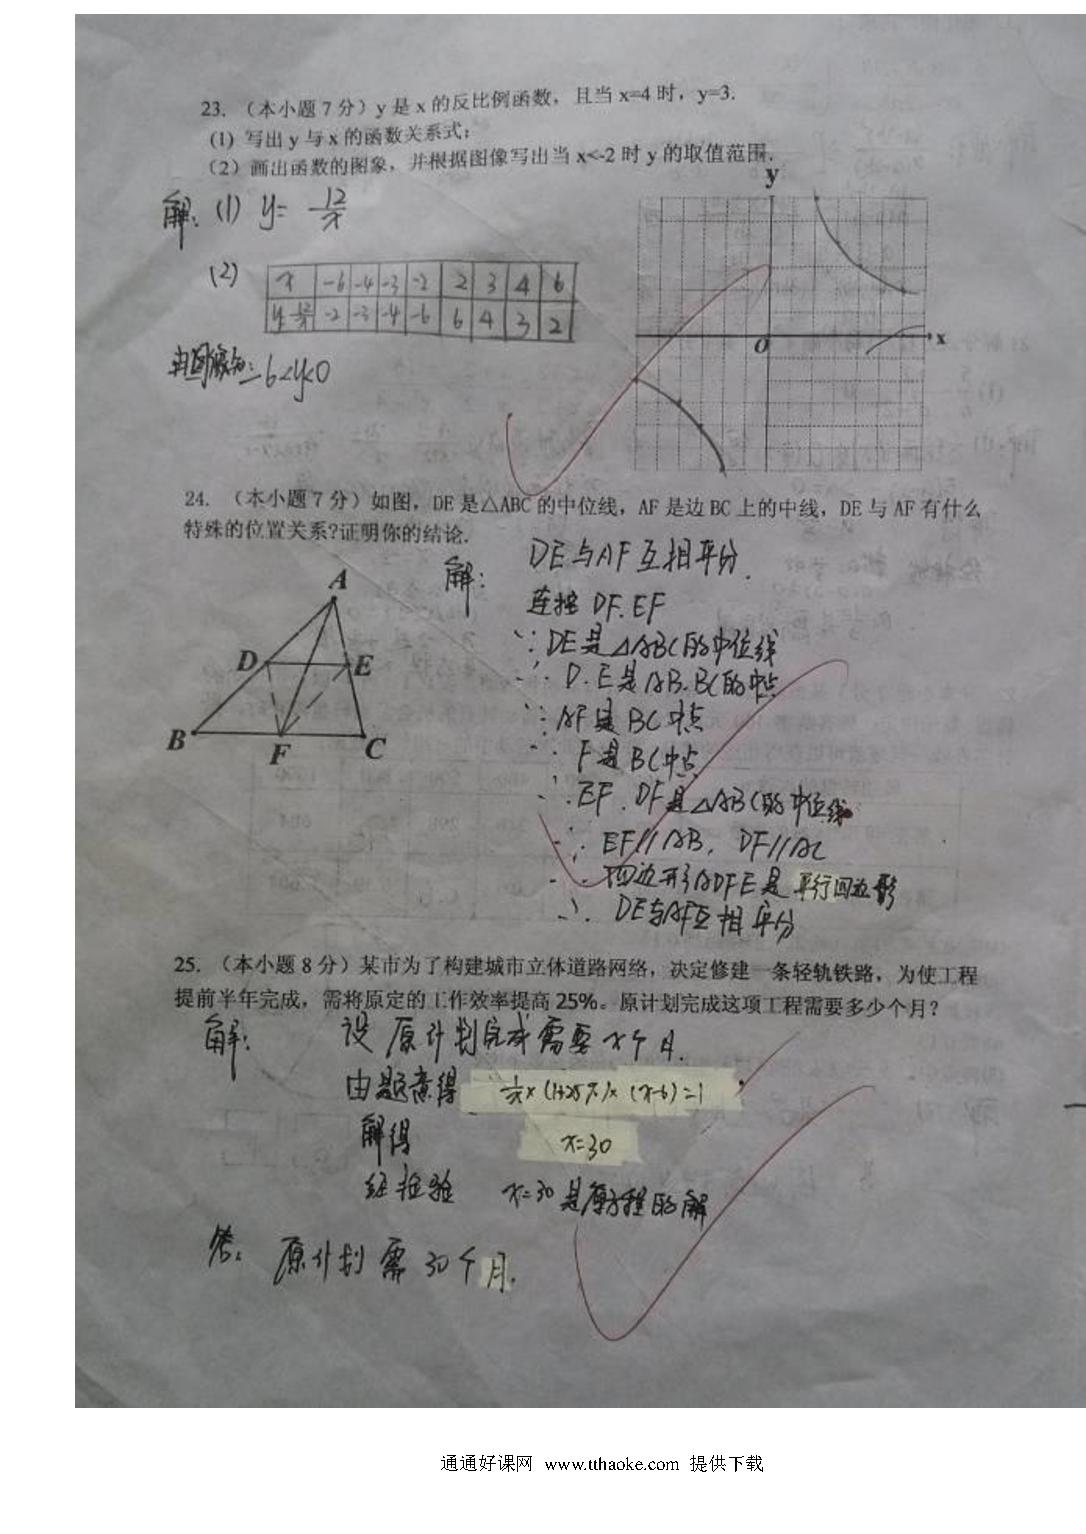 23. （本小题7分）y是x的反比例函数，且当x=4时，y=3.
(1) 写出y与x的函数关系式；
（2）画出函数的图象，并根据图像写出当x<-2时y的取值范围.
解：(1) y= 12/x
(2)
x -6 -4 -3 -2 2 3 4 6
y=12/x -2 -3 -4 -6 6 4 3 2
-6<y<0
y
O
x
24. （本小题7分）如图，DE是△ABC的中位线，AF是边BC上的中线，DE与AF有什么
特殊的位置关系?证明你的结论.
A
D
E
B
F
C
解：
DE与AF互相平分.
连接 DF.EF
∵DE是△ABC的中位线
∴D.E是AB.BC的中点
∵AF是BC中点
∴F是BC中点
∴EF.DF是△ABC的中位线
∴EF//AB，DF//AC
∴四边形ADFE是平行四边形
∴DE与AF互相平分
25. （本小题8分）某市为了构建城市立体道路网络，决定修建一条轻轨铁路，为使工程
提前半年完成，需将原定的工作效率提高25%。原计划完成这项工程需要多少个月？
解：设原计划完成需要x个月.
由题意得 1/x×(1+25%)×(x-6)=1
解得 x=30
经检验 x=30是原方程的解
答：原计划需30个月.
通通好课网 www.tthaoke.com 提供下载